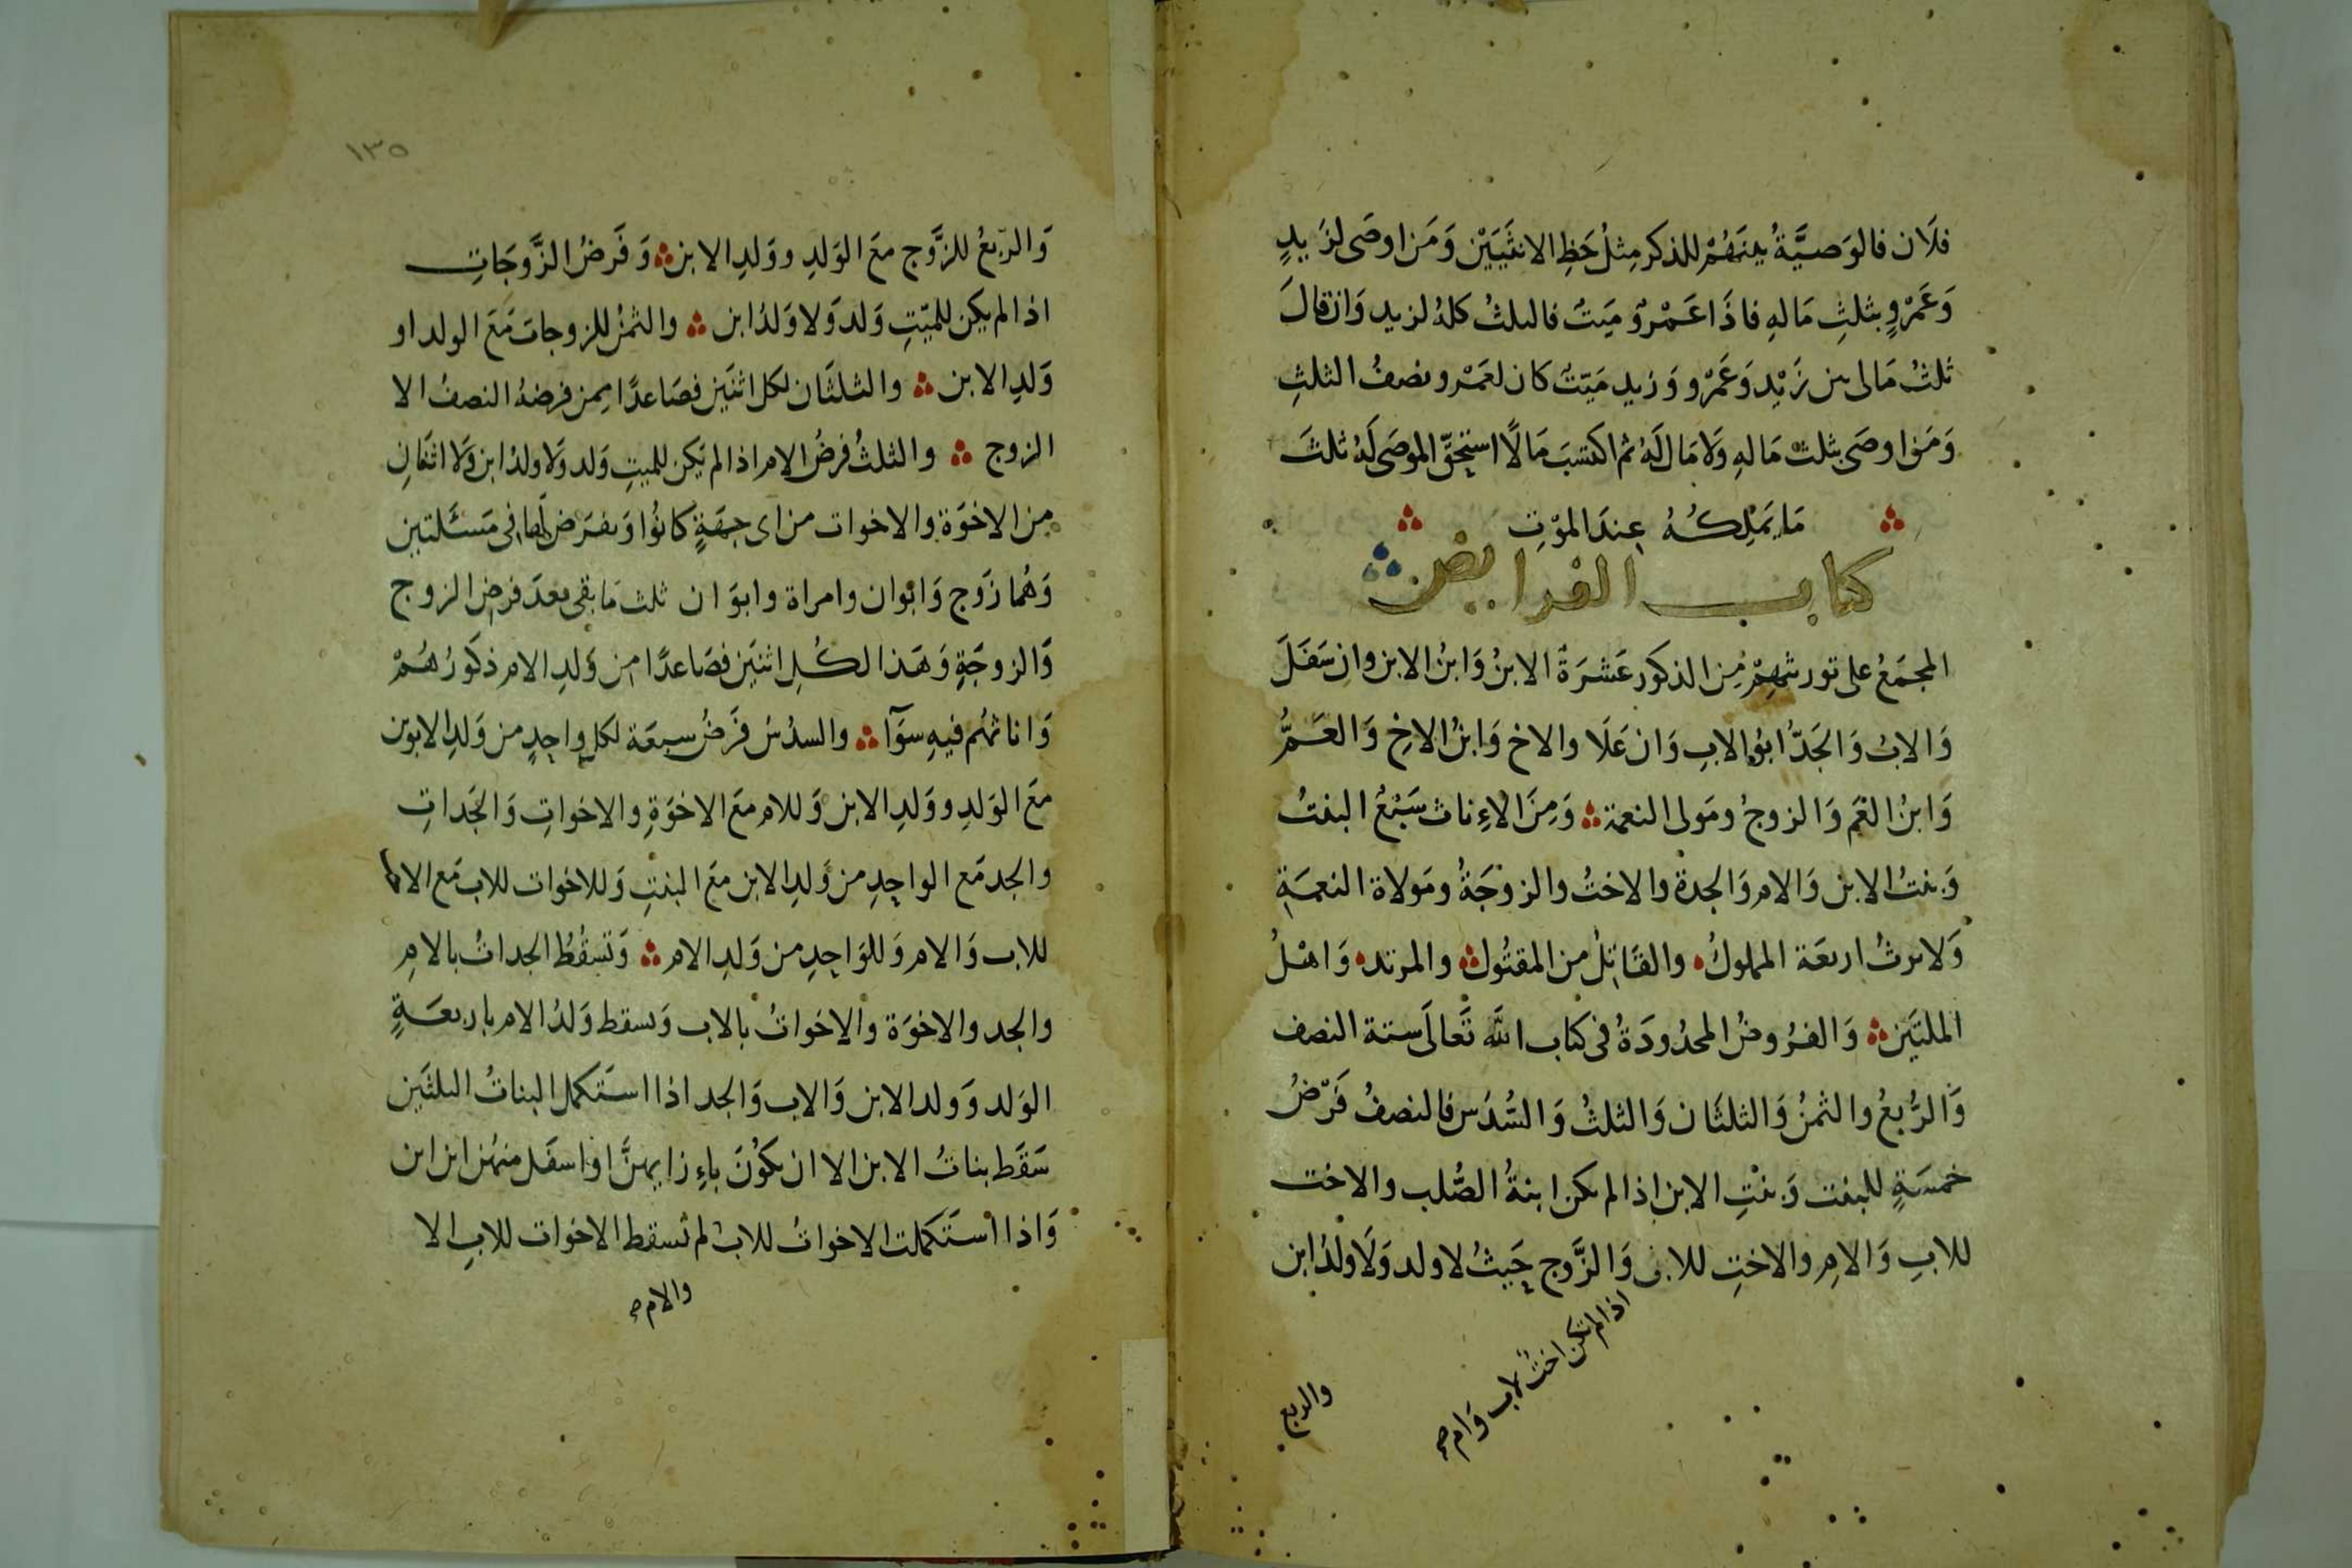 فلَان فالوَصيَّةُ بينَهُمْ للذكر مِثلُ حَظِ الانثَيَيْن وَمَن اوصَى لزَيدٍ
وَعَمْروٍ بثلثِ مَالهِ فاذَا عَمْرٌو مَيتٌ فالثلثُ كلهُ لزيد وَان قالَ
ثلثُ مَالى بين زَيْد وَعَمْرو وَزيد مَيّتٌ كان لعَمْرو نصفُ الثلثِ
وَمَن اوصَى بثلث مَالهِ وَلا مَال لَهُ ثم اكتسَبَ مَالًا استحقّ الموصَى لَهُ ثلثَ
مَا يَمْلِكُهُ عِندَ الموْتِ
كتاب الفرايض
المجمَعُ على توريثهِمْ مِن الذكور عَشرَةٌ الابنُ وَابنُ الابن وان سَفَلَ
وَالابُ وَالجَدّ ابوُ الابِ وَان عَلَا والاخ وَابنُ الاخِ وَالعَمُّ
وَابنُ العَم وَالزوجُ ومَولى النعمة وَمِنَ الاِناث سَبْعٌ البنتُ
وَبنتُ الابن وَالام وَالجدة والاختُ والزوجَةُ ومَولاة النعمَةِ
وَلا يرثُ اربعَة المملوكُ والقَاتِلُ من المقتُول والمرتد وَاهْلُ
الملتَين وَالفرُوضُ المحدُودَةُ فى كتاب اللّه تَعَالَى ستة النصف
وَالرُّبعُ والثمنُ وَالثلثَان وَالثلثُ وَالسُّدُس فالنصفُ فَرْضُ
خمسَةٍ للبنت وَبنْتِ الابن اذا لم يكن ابنةُ الصُّلب والاخت
للابِ وَالامِ والاختِ للاب وَالزَّوج حَيثُ لا ولد وَلَا ولدُ ابن
اذا لم تكن اختٌ لاب وَام صح
والربع
١٣٥
وَالرّبعُ للزَّوج مَعَ الوَلدِ ووَلدِ الابن وَفَرضُ الزَّوجَاتِ
اذا لم يكن للميّتِ وَلد وَلا وَلدُ ابن والثمنُ للزوجات مَعَ الولد او
وَلدِ الابن والثلثَان لكل اثنَين فصَاعدًا مِمن فرضهُ النصفُ الا
الزوج والثلثُ فرضُ الام اذا لم يَكن للميتِ وَلد وَلا ولدُ ابن وَلا اثنَانِ
مِن الاخوَة والاخوات من اى جهَةٍ كانُوا وَيفرَض لَها فى مَسئَلتين
وَهُما زَوج وَابوان وامراة وابوَان ثلث مَا بقى بعدَ فرض الزوج
وَالزوجَةِ وَهَذا لكُلِ اثنيَن فصَاعدًا من وَلدِ الام ذكورُهُمْ
وَاناثهُم فيهِ سوَآ والسدُسُ فرَضُ سبعَة لكل واحِدٍ من وَلدِ الابوين
مَعَ الوَلدِ ووَلدِ الابن وَللام مَعَ الاخوَةِ والاخواتِ وَالجَداتِ
والجد مَع الواحِدِ من وَلدِ الابن مَعَ البنتِ وَللاخوات للاب مَع الاخت
للاب وَالام وَللوَاحِدِ من وَلدِ الام وَتسقُطُ الجداتُ بالامِ
والجد والاخوَة والاخواتُ بالاب وَيسقط وَلدُ الام باربعَةٍ
الوَلد وَولد الابن وَالاب وَالجد اذا استَكمل البناتُ الثلثَين
سَقَط بناتُ الابن الا ان يكوُنَ باِزايهنَّ او اسفَل منهُن ابن ابن
وَاذا استَكملت الاخواتُ للاب لم تسقط الاخوات للابِ الا
والام صح